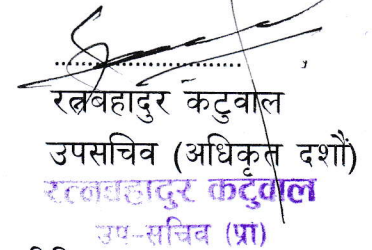 रत्नबहादुर कटुवाल
उपसचिव (अधिकृत दशौं)
रत्नबहादुर कटुवाल
उप-सचिव (प्रा)